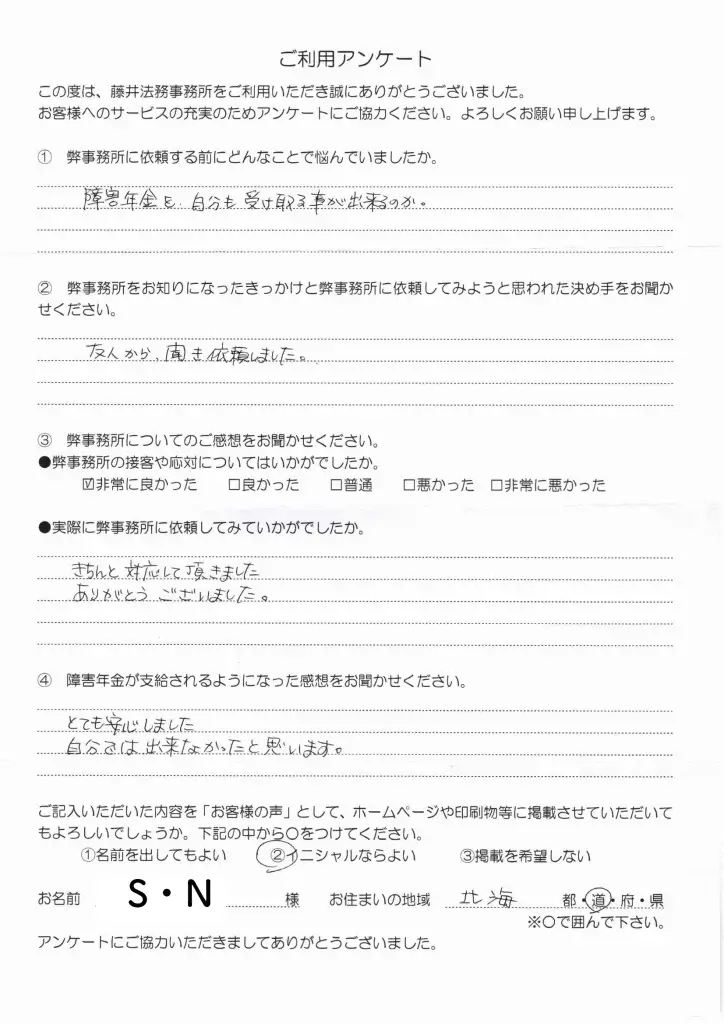 ご利用アンケート
この度は、藤井法務事務所をご利用いただき誠にありがとうございました。
お客様へのサービスの充実のためアンケートにご協力ください。よろしくお願い申し上げます。
① 弊事務所に依頼する前にどんなことで悩んでいましたか。
障害年金を、自分も受け取る事が出来るのか。
② 弊事務所をお知りになったきっかけと弊事務所に依頼してみようと思われた決め手をお聞か
せください。
友人から、聞き依頼しました。
③ 弊事務所についてのご感想をお聞かせください。
●弊事務所の接客や応対についてはいかがでしたか。
☑非常に良かった □良かった □普通 □悪かった □非常に悪かった
●実際に弊事務所に依頼してみていかがでしたか。
きちんと対応して頂きました
ありがとうございました。
④ 障害年金が支給されるようになった感想をお聞かせください。
とても安心しました
自分では出来なかったと思います。
ご記入いただいた内容を「お客様の声」として、ホームページや印刷物等に掲載させていただいて
もよろしいでしょうか。下記の中から○をつけてください。
①名前を出してもよい ②イニシャルならよい ③掲載を希望しない
お名前 S・N 様 お住まいの地域 北海 都・道・府・県
※○で囲んで下さい。
アンケートにご協力いただきましてありがとうございました。